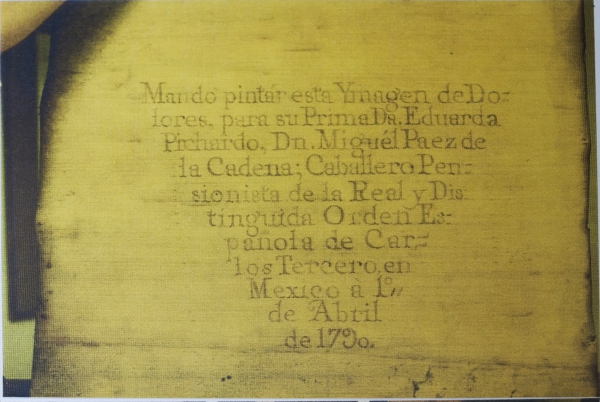 Mando pintar esta Ymagen de Do=
lores. para su Prima Da. Eduarda
Pichardo, Dn. Miguél Paez de
la Cadena; Caballero Pen=
sionista de la Real y Dis=
tinguida Orden Es=
pañola de Car=
los Tercero, en
Mexico à 1º,,
de Abril
de 1790.